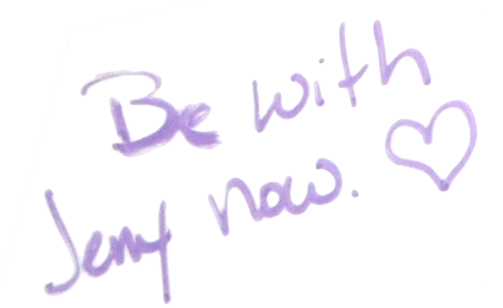 Be with
Jerry now.